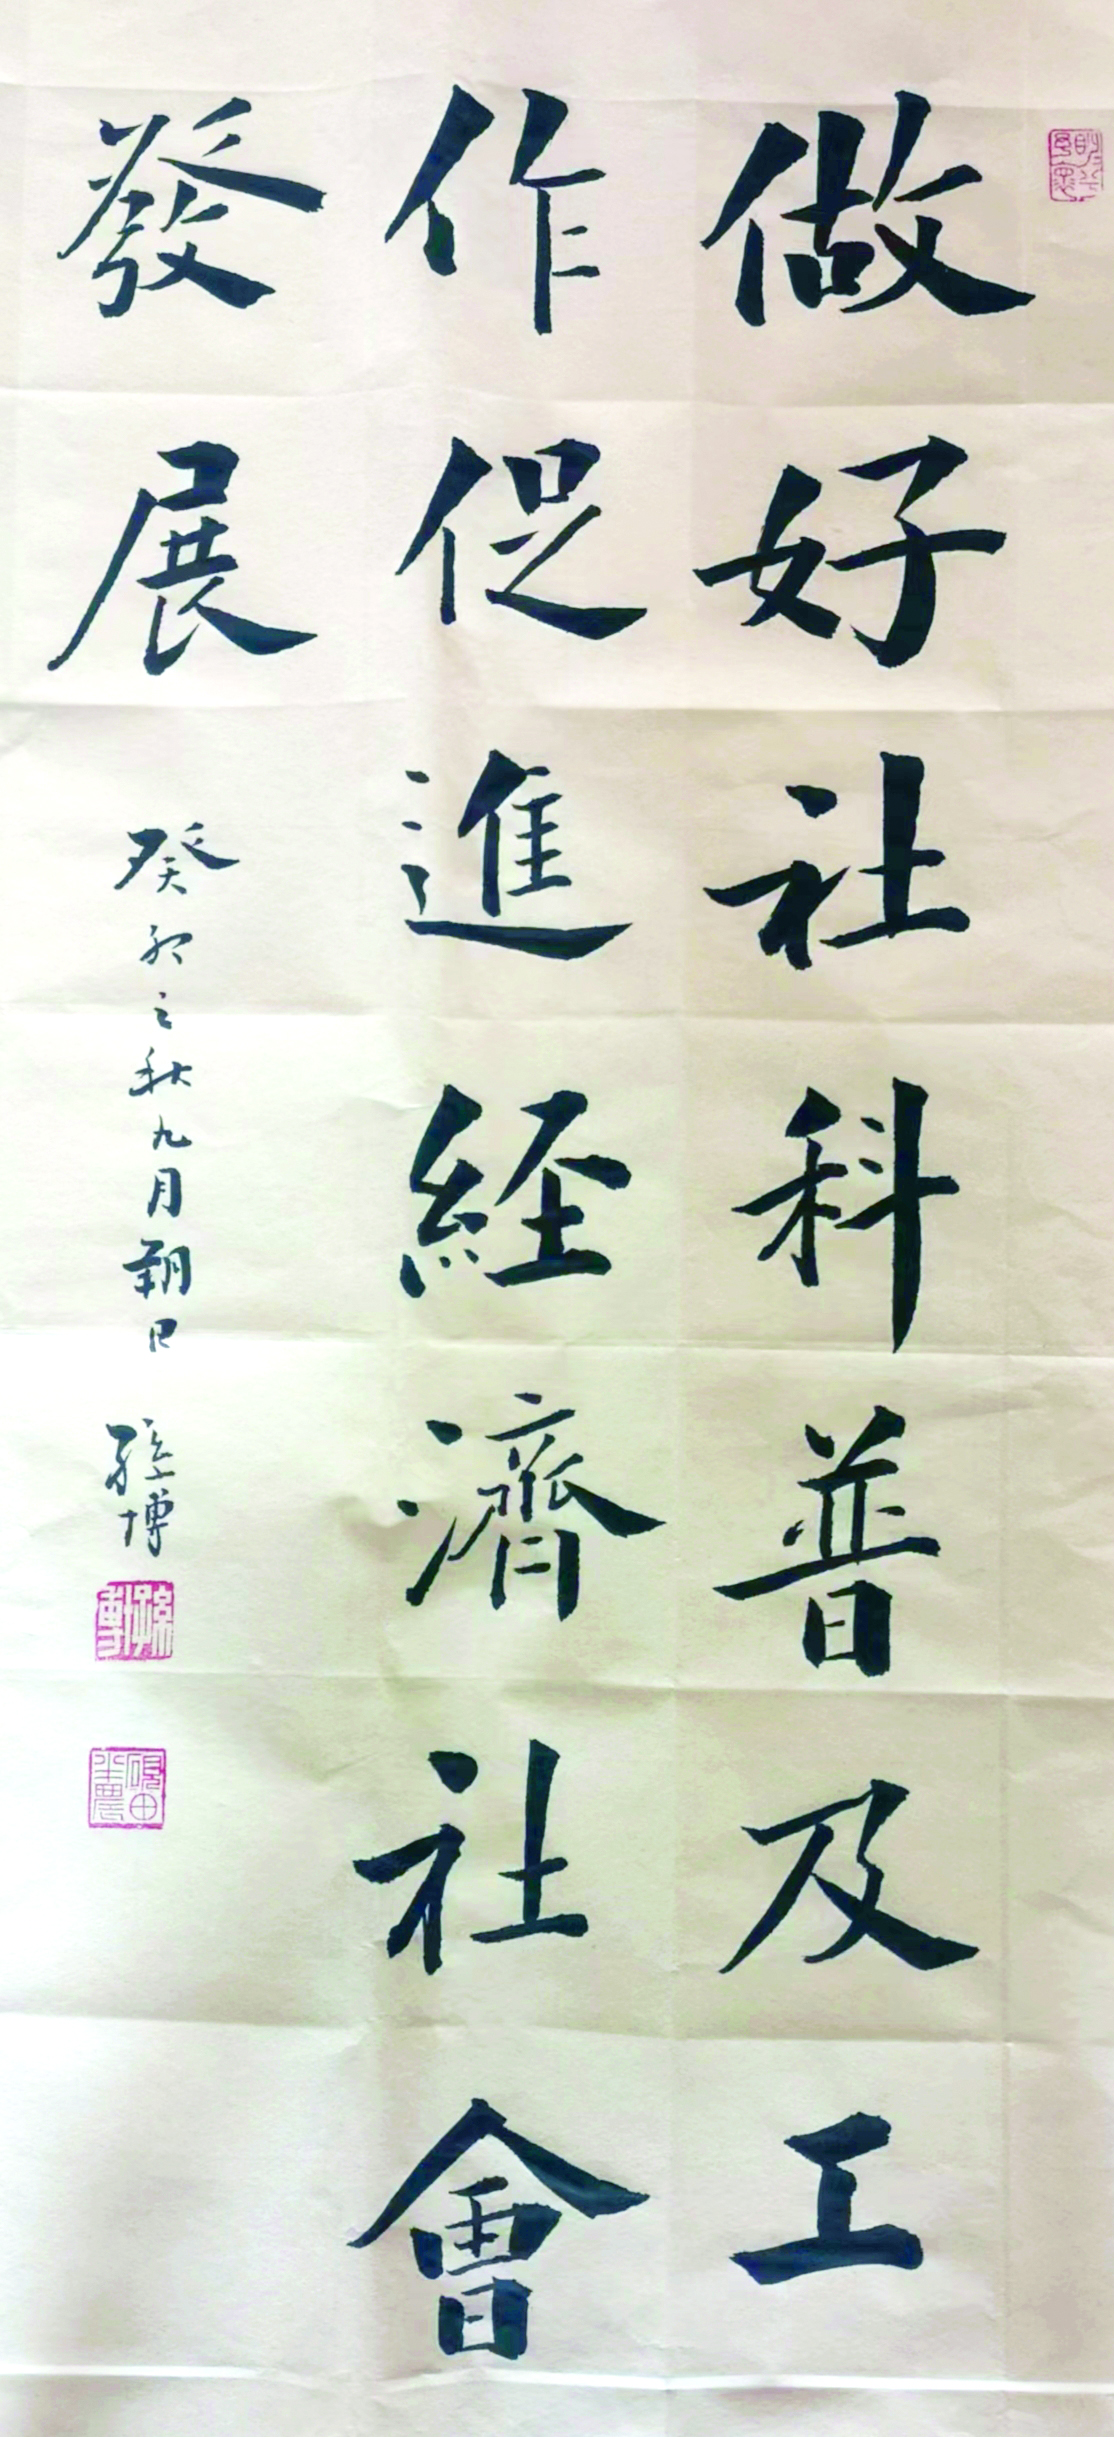 做好社科普及工
作促進経濟社會
發展
癸卯之秋九月朔日
孫博